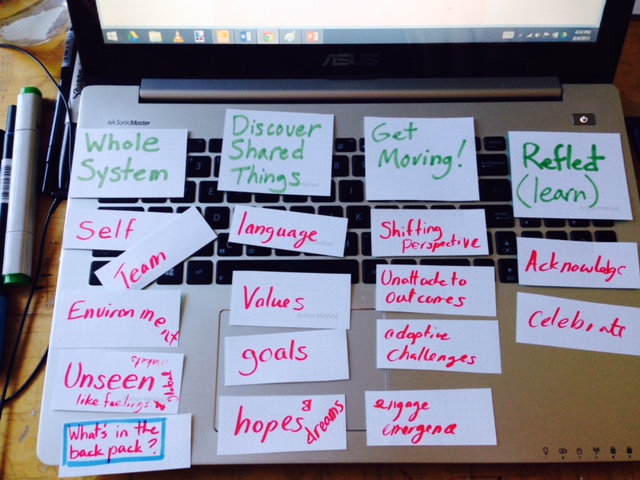 ASUS
SonicMaster
4:04 PM
Whole
System
Self
Team
Environment
Unseen
like feelings &
What's in the
back pack?
Discover
Shared
Things
language
Values
goals
hopes &
dreams
Get
Moving!
Shifting
Perspective
Unattach to
outcomes
adaptive
challenges
engage
emergence
Reflect
(learn)
Acknowledge
Celebrate